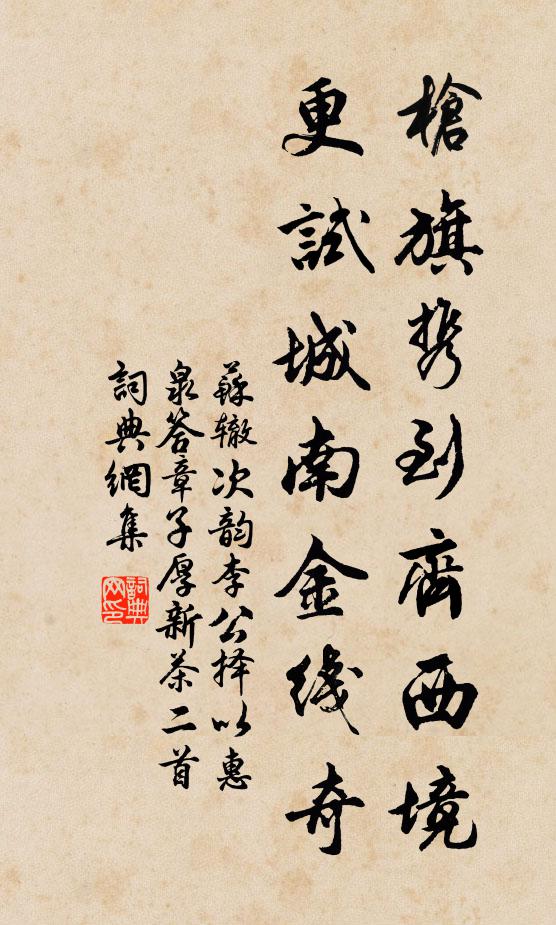 槍旗携到齊西境
更試城南金綫奇
蘇辙次韵李公择以惠
泉答章子厚新茶二首
詞典網集
詞典網印